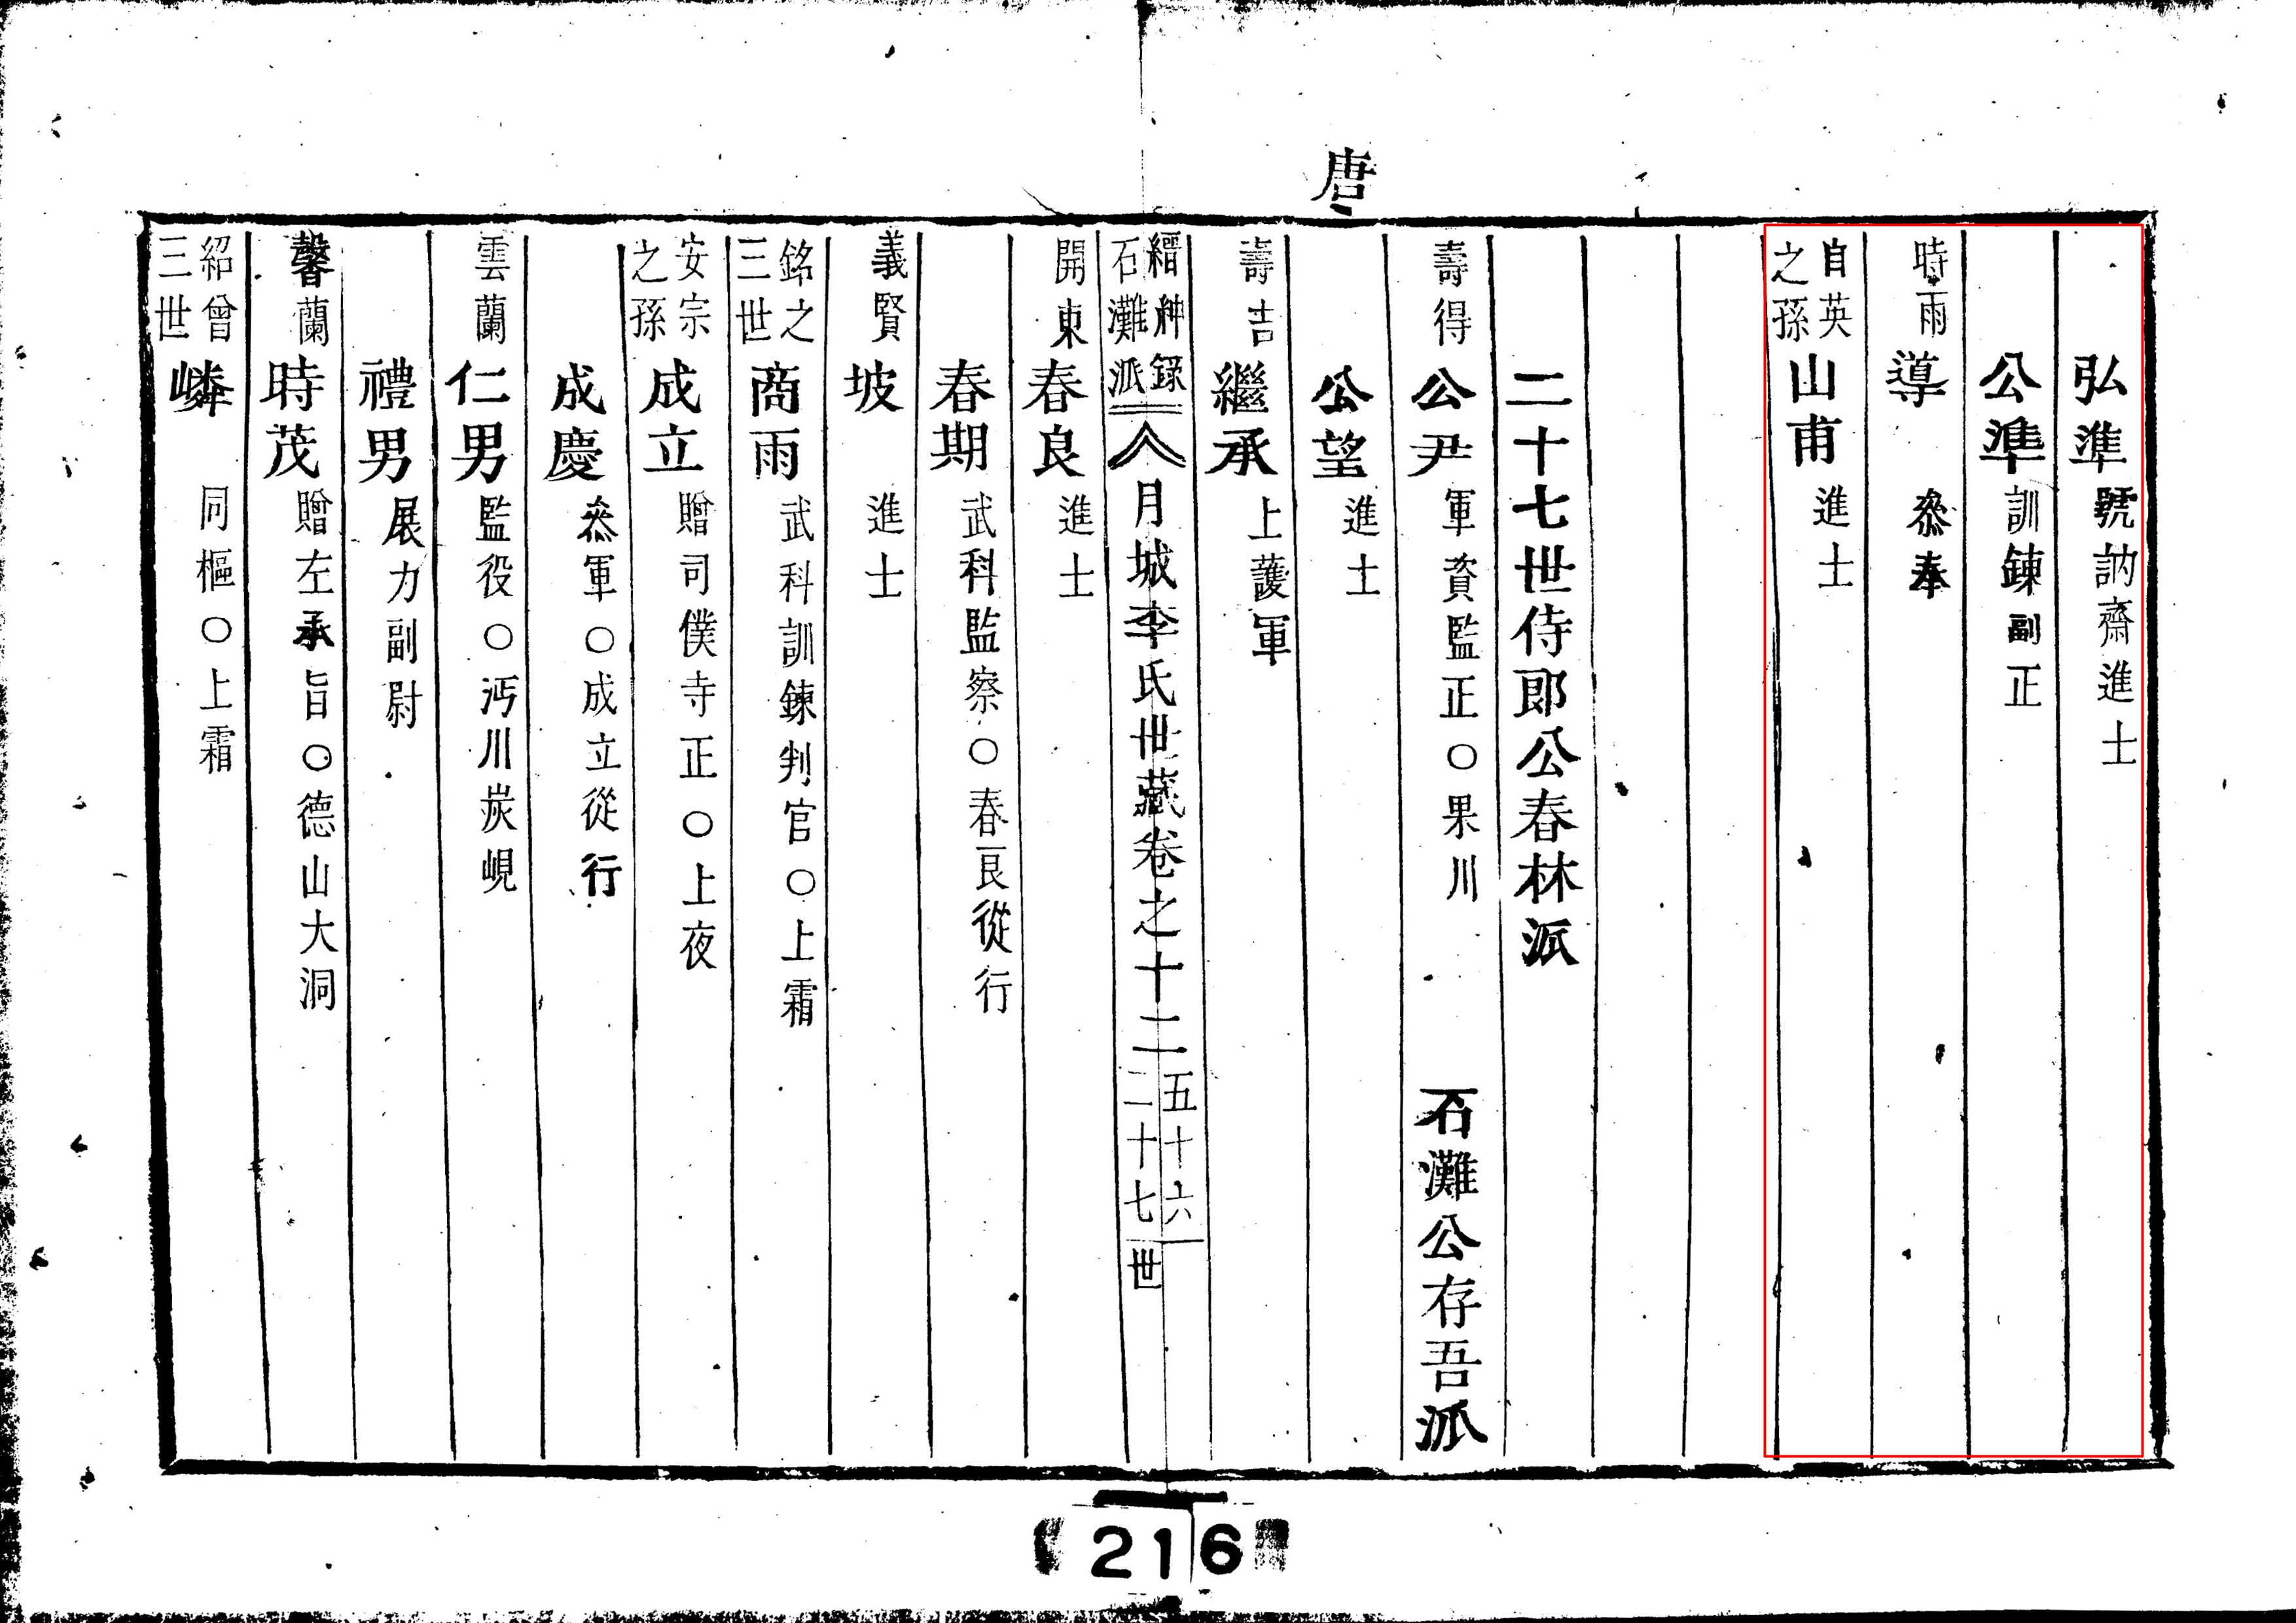 唐
弘準 號訥齋進士
公準 訓鍊副正
時雨 導 叅奉
自英之孫 山甫 進士
二十七世侍郎公春林派
壽得 公尹 軍資監正○果川 石灘公存吾派
公望 進士
壽吉 繼承 上護軍
縉紳錄 石灘派 月城李氏世藏卷之十二 五十六 二十七世
開東 春良 進士
春期 武科監察○春良從行
義賢 坡 進士
銘之三世 商雨 武科訓鍊判官○上霜
安宗之孫 成立 贈司僕寺正○上夜
成慶 叅軍○成立從行
雲蘭 仁男 監役○沔川炭峴
禮男 展力副尉
馨蘭 時茂 贈左承旨○德山大洞
紹曾三世 嶙 同樞○上霜
216